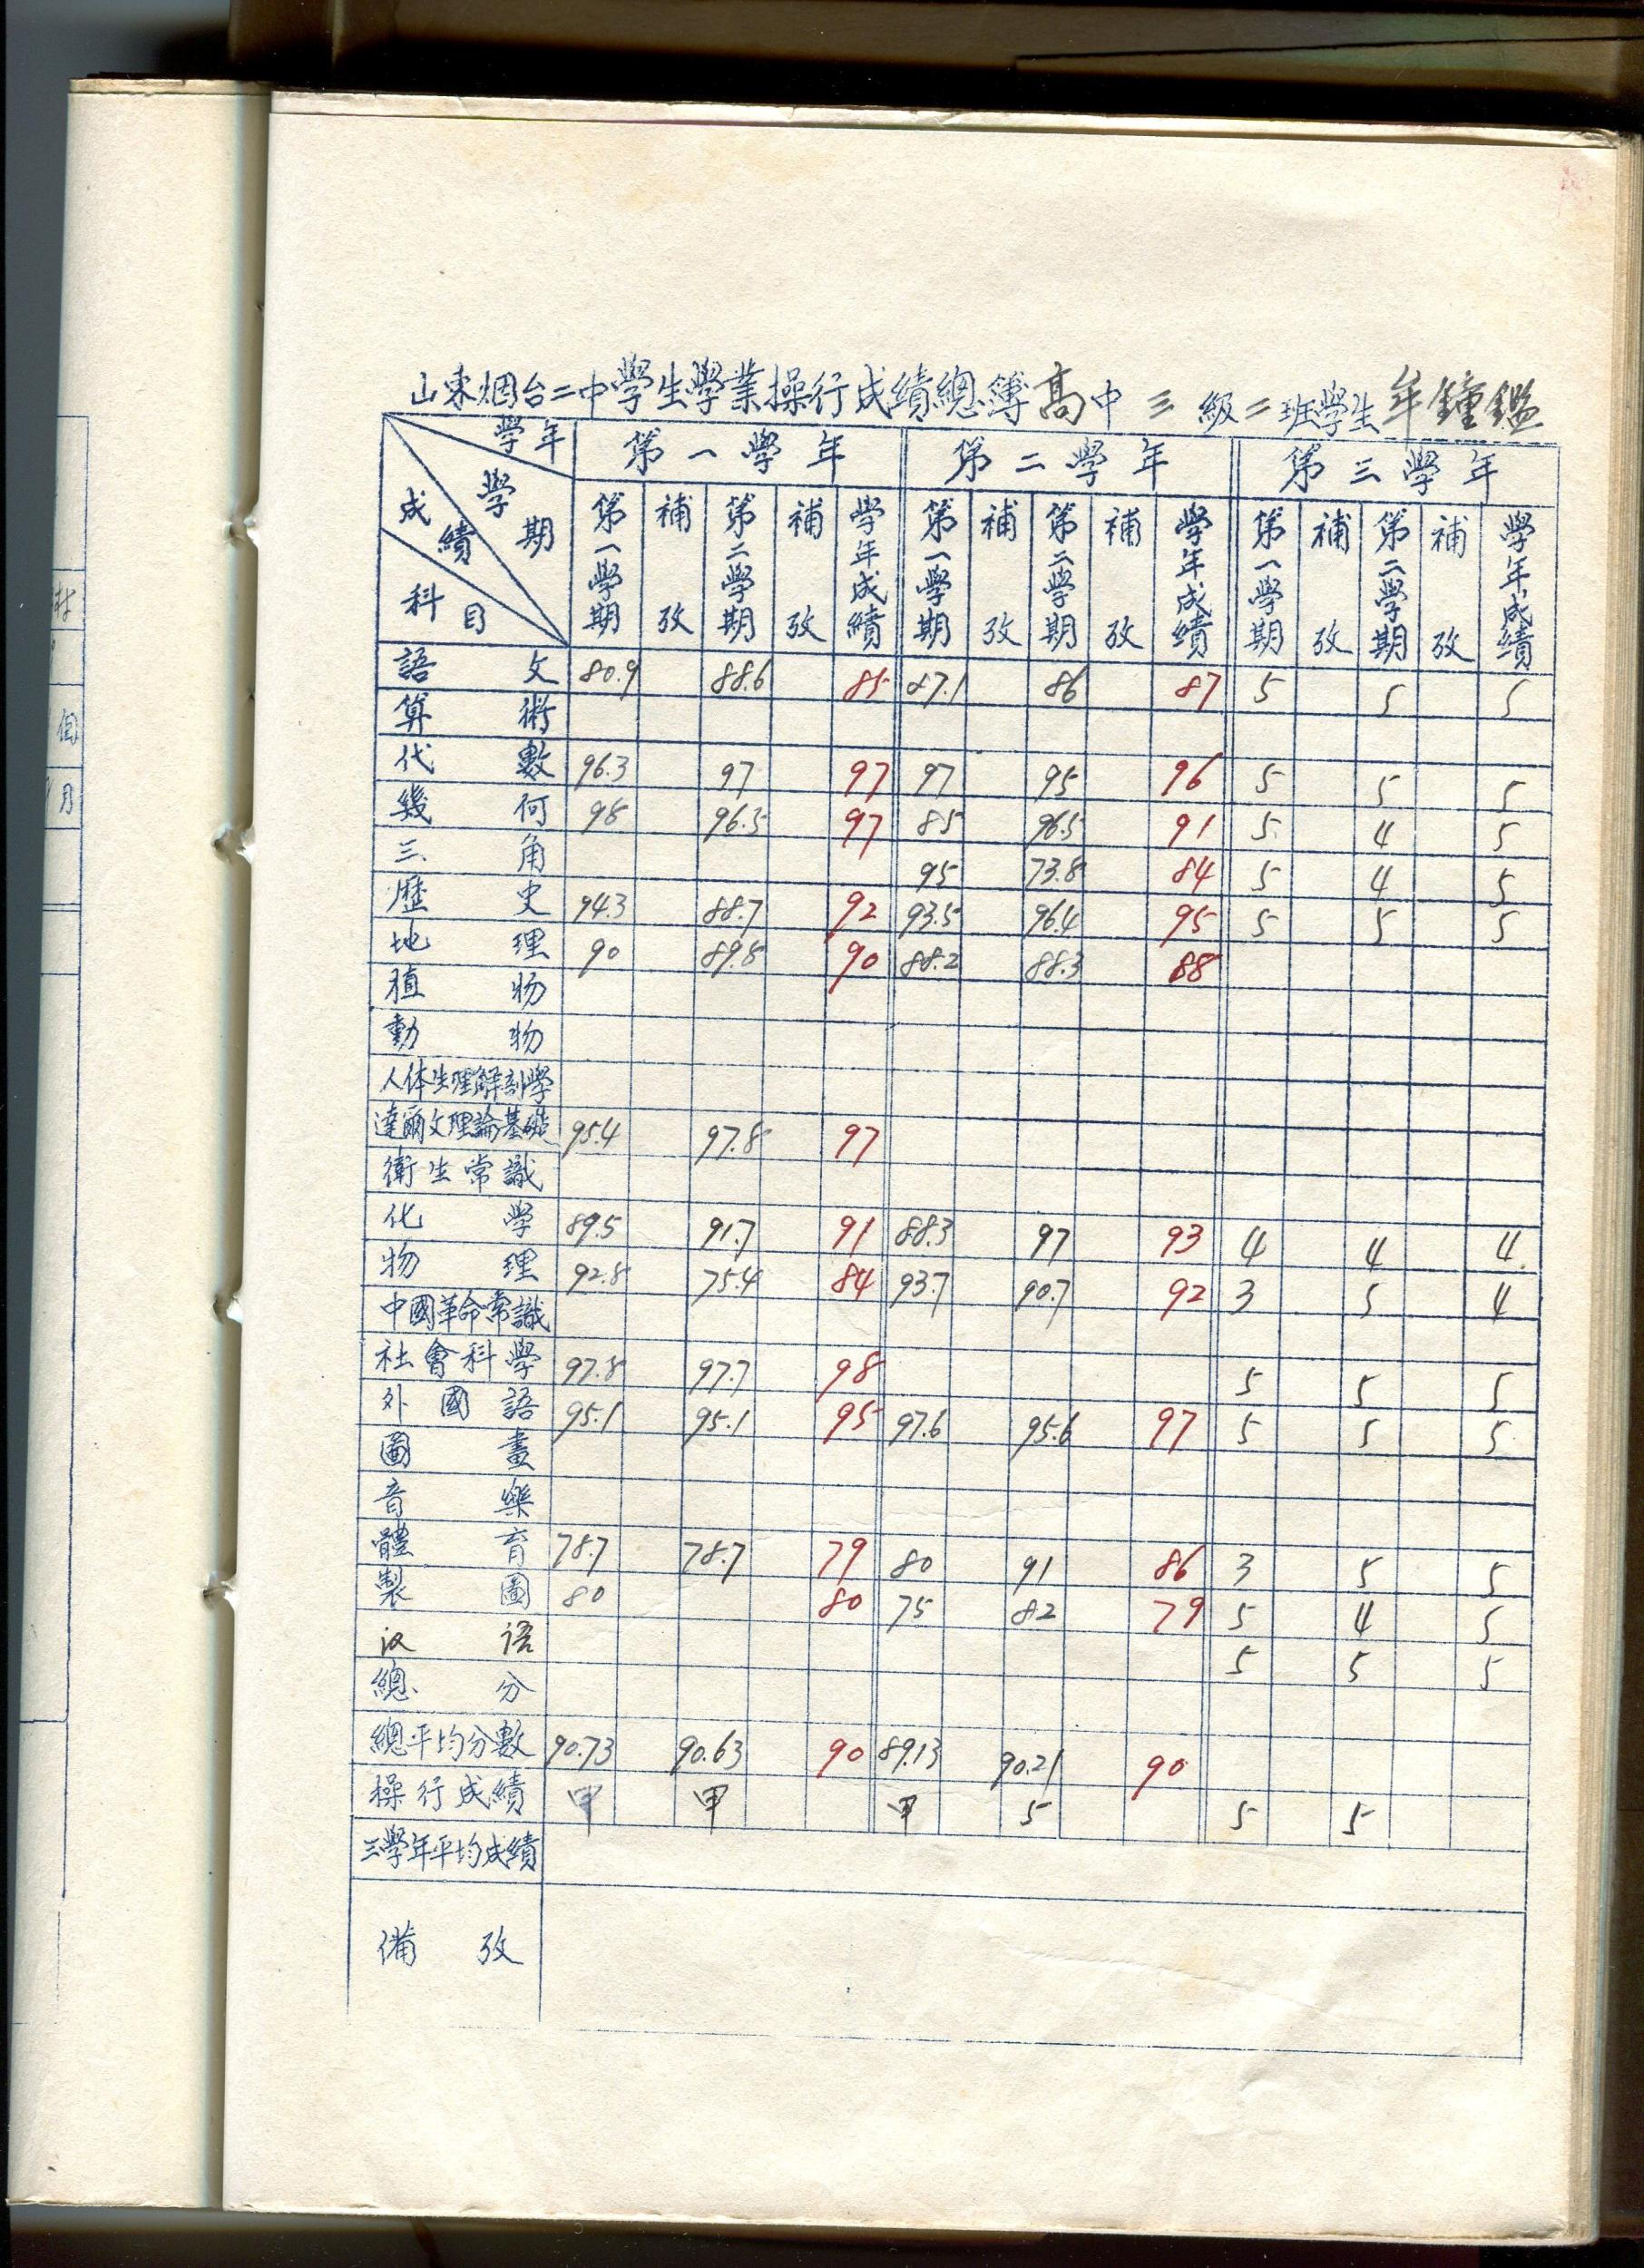 山東烟台二中學生學業操行成績總簿 高中 三 級 二 班學生 年鐘鑑
學年 第一學年 第二學年 第三學年
學期 成績 科目 第一學期 補攷 第二學期 補攷 學年成績 第一學期 補攷 第二學期 補攷 學年成績 第一學期 補攷 第二學期 補攷 學年成績
語文 80.9 88.6 85 87.1 86 87 5 5 5
算術
代數 96.3 97 97 97 95 96 5 5 5
幾何 98 96.5 97 85 96.5 91 5 4 5
三角 95 73.8 84 5 4 5
歷史 94.3 88.7 92 93.5 96.4 95 5 5 5
地理 90 89.8 90 88.2 88.3 88
植物
動物
人体生理解剖學
達爾文理論基礎 95.4 97.8 97
衛生常識
化學 89.5 91.7 91 88.3 97 93 4 4 4
物理 92.8 75.4 84 93.7 90.7 92 3 5 4
中國革命常識
社會科學 97.8 97.7 98 5 5 5
外國語 95.1 95.1 95 97.6 95.6 97 5 5 5
圖畫
音樂
體育 78.7 78.7 79 80 91 86 3 5 5
製圖 80 80 75 82 79 5 4 5
汉语 5 5 5
總分
總平均分數 90.73 90.63 90 89.13 90.21 90
操行成績 甲 甲 甲 5 5 5
三學年平均成績
備攷